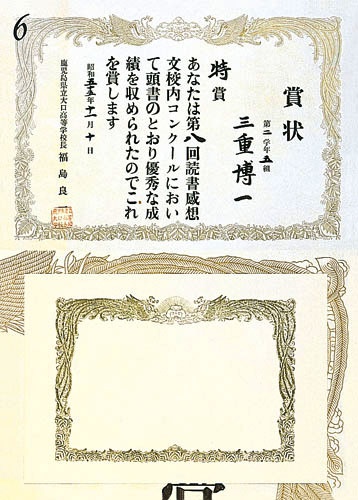 6
賞状
第二学年五組
三重博一
特賞
あなたは第八回読書感想
文校内コンクールにおい
て頭書のとおり優秀な成
績を収められたのでこれ
を賞します
昭和五五年十一月十日
鹿児島県立大口高等学校長 福島良